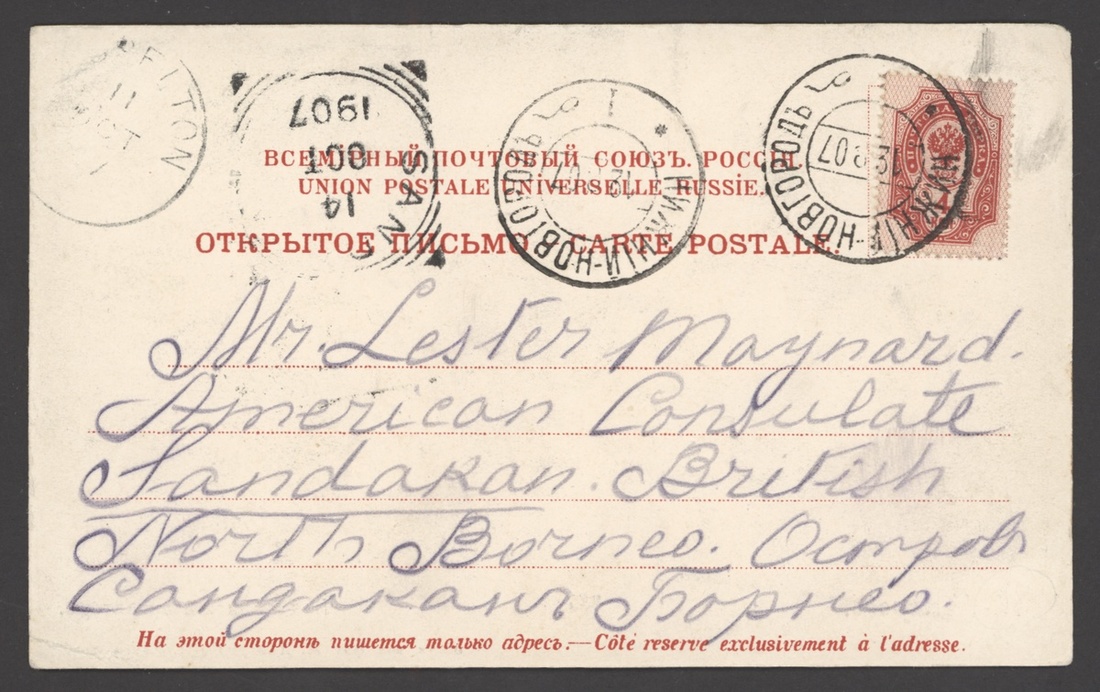 ВСЕМІРНЫЙ ПОЧТОВЫЙ СОЮЗЪ. РОССІЯ.
UNION POSTALE UNIVERSELLE RUSSIE.
ОТКРЫТОЕ ПИСЬМО. CARTE POSTALE.
11
14
OCT
1907
SAN
НИЖНІЙ-НОВГОРОДЪ
НИЖНІЙ-НОВГОРОДЪ
Mr. Lester Maynard.
American Consulate
Sandakan. British
North Borneo. Островъ
Сандаканъ Борнео.
На этой сторонѣ пишется только адресъ.—Côté reserve exclusivement à l'adresse.